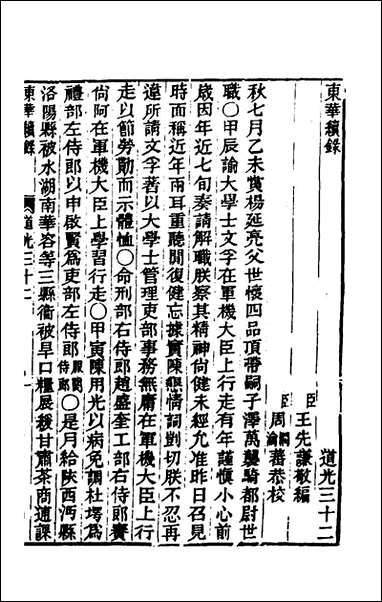 東華續錄
道光三十二
臣王先謙敬編
臣周瀹蕃恭校
秋七月乙未賞楊延亮父世懷四品頂帶嗣子澤萬襲騎都尉世
職〇甲辰諭大學士文孚在軍機大臣上行走有年謹慎小心前
歲因年近七旬奏請解職朕察其精神尙健未經允准昨日召見
時面稱近年兩耳重聽閒復健忘據實陳懇情詞剴切朕不忍再
違所請文孚著以大學士管理吏部事務無庸在軍機大臣上行
走以節勞勩而示體恤〇命刑部右侍郎趙盛奎工部右侍郎賽
尙阿在軍機大臣上學習行走〇甲寅陳用光以病免調杜堮爲
禮部左侍郎以申啟賢爲吏部左侍郎〇是月給陝西沔縣
洛陽縣被水湖南華容等三縣衞被旱口糧展緩甘肅茶商逋課
東華續錄
道光三十二
一